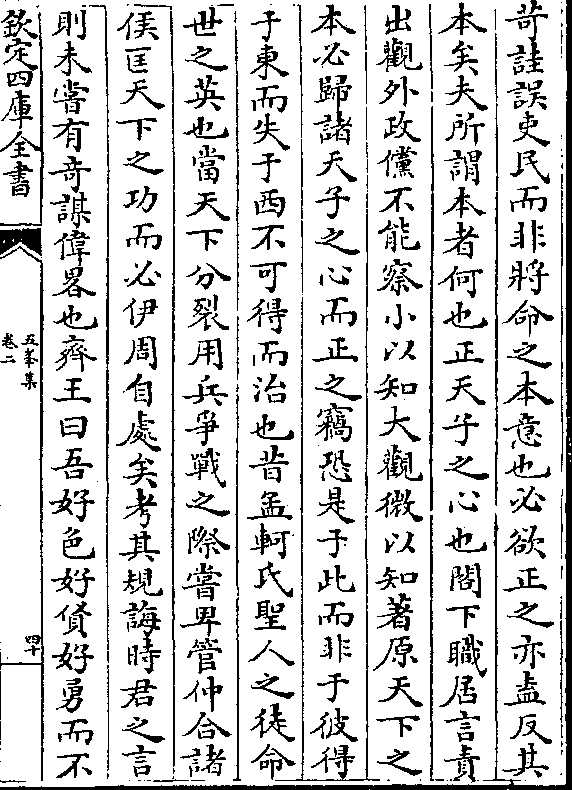 苛詿誤吏民而非將命之本意也必欲正之亦盍反其
本矣夫所謂本者何也正天子之心也閤下職居言責
出觀外政儻不能察小以知大觀微以知著原天下之
本必歸諸天子之心而正之竊恐是于此而非于彼得
于東而失于西不可得而治也昔孟軻氏聖人之徒命
世之英也當天下分裂用兵爭戰之際嘗卑管仲合諸
侯匡天下之功而必伊周自處矣考其規誨時君之言
則未嘗有竒謀偉畧也齊王曰吾好色好貨好勇而不
欽定四庫全書
五峯集
卷二
四十